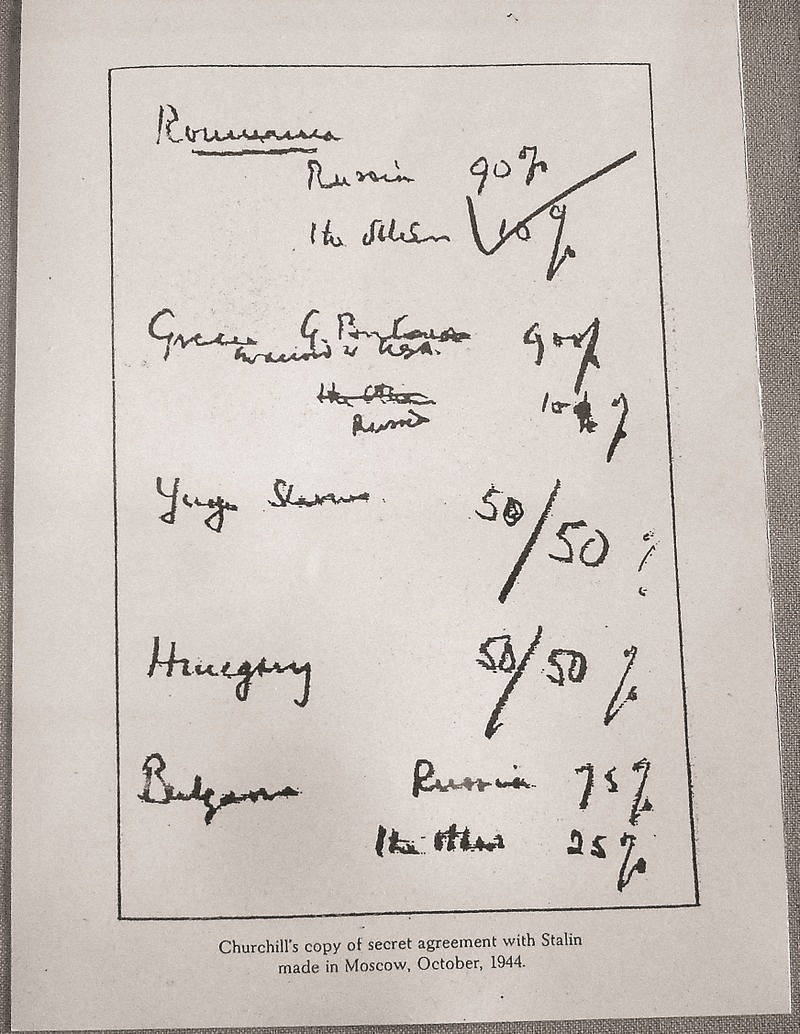 Roumania
Russia 90%
The others 10%
Greece G. Britain 90%
in accord w USA.
The others
Russia 10%
Yugo Slavia 50/50 %
Hungary 50/50 %
Bulgaria Russia 75%
The others 25%
Churchill's copy of secret agreement with Stalin
made in Moscow, October, 1944.